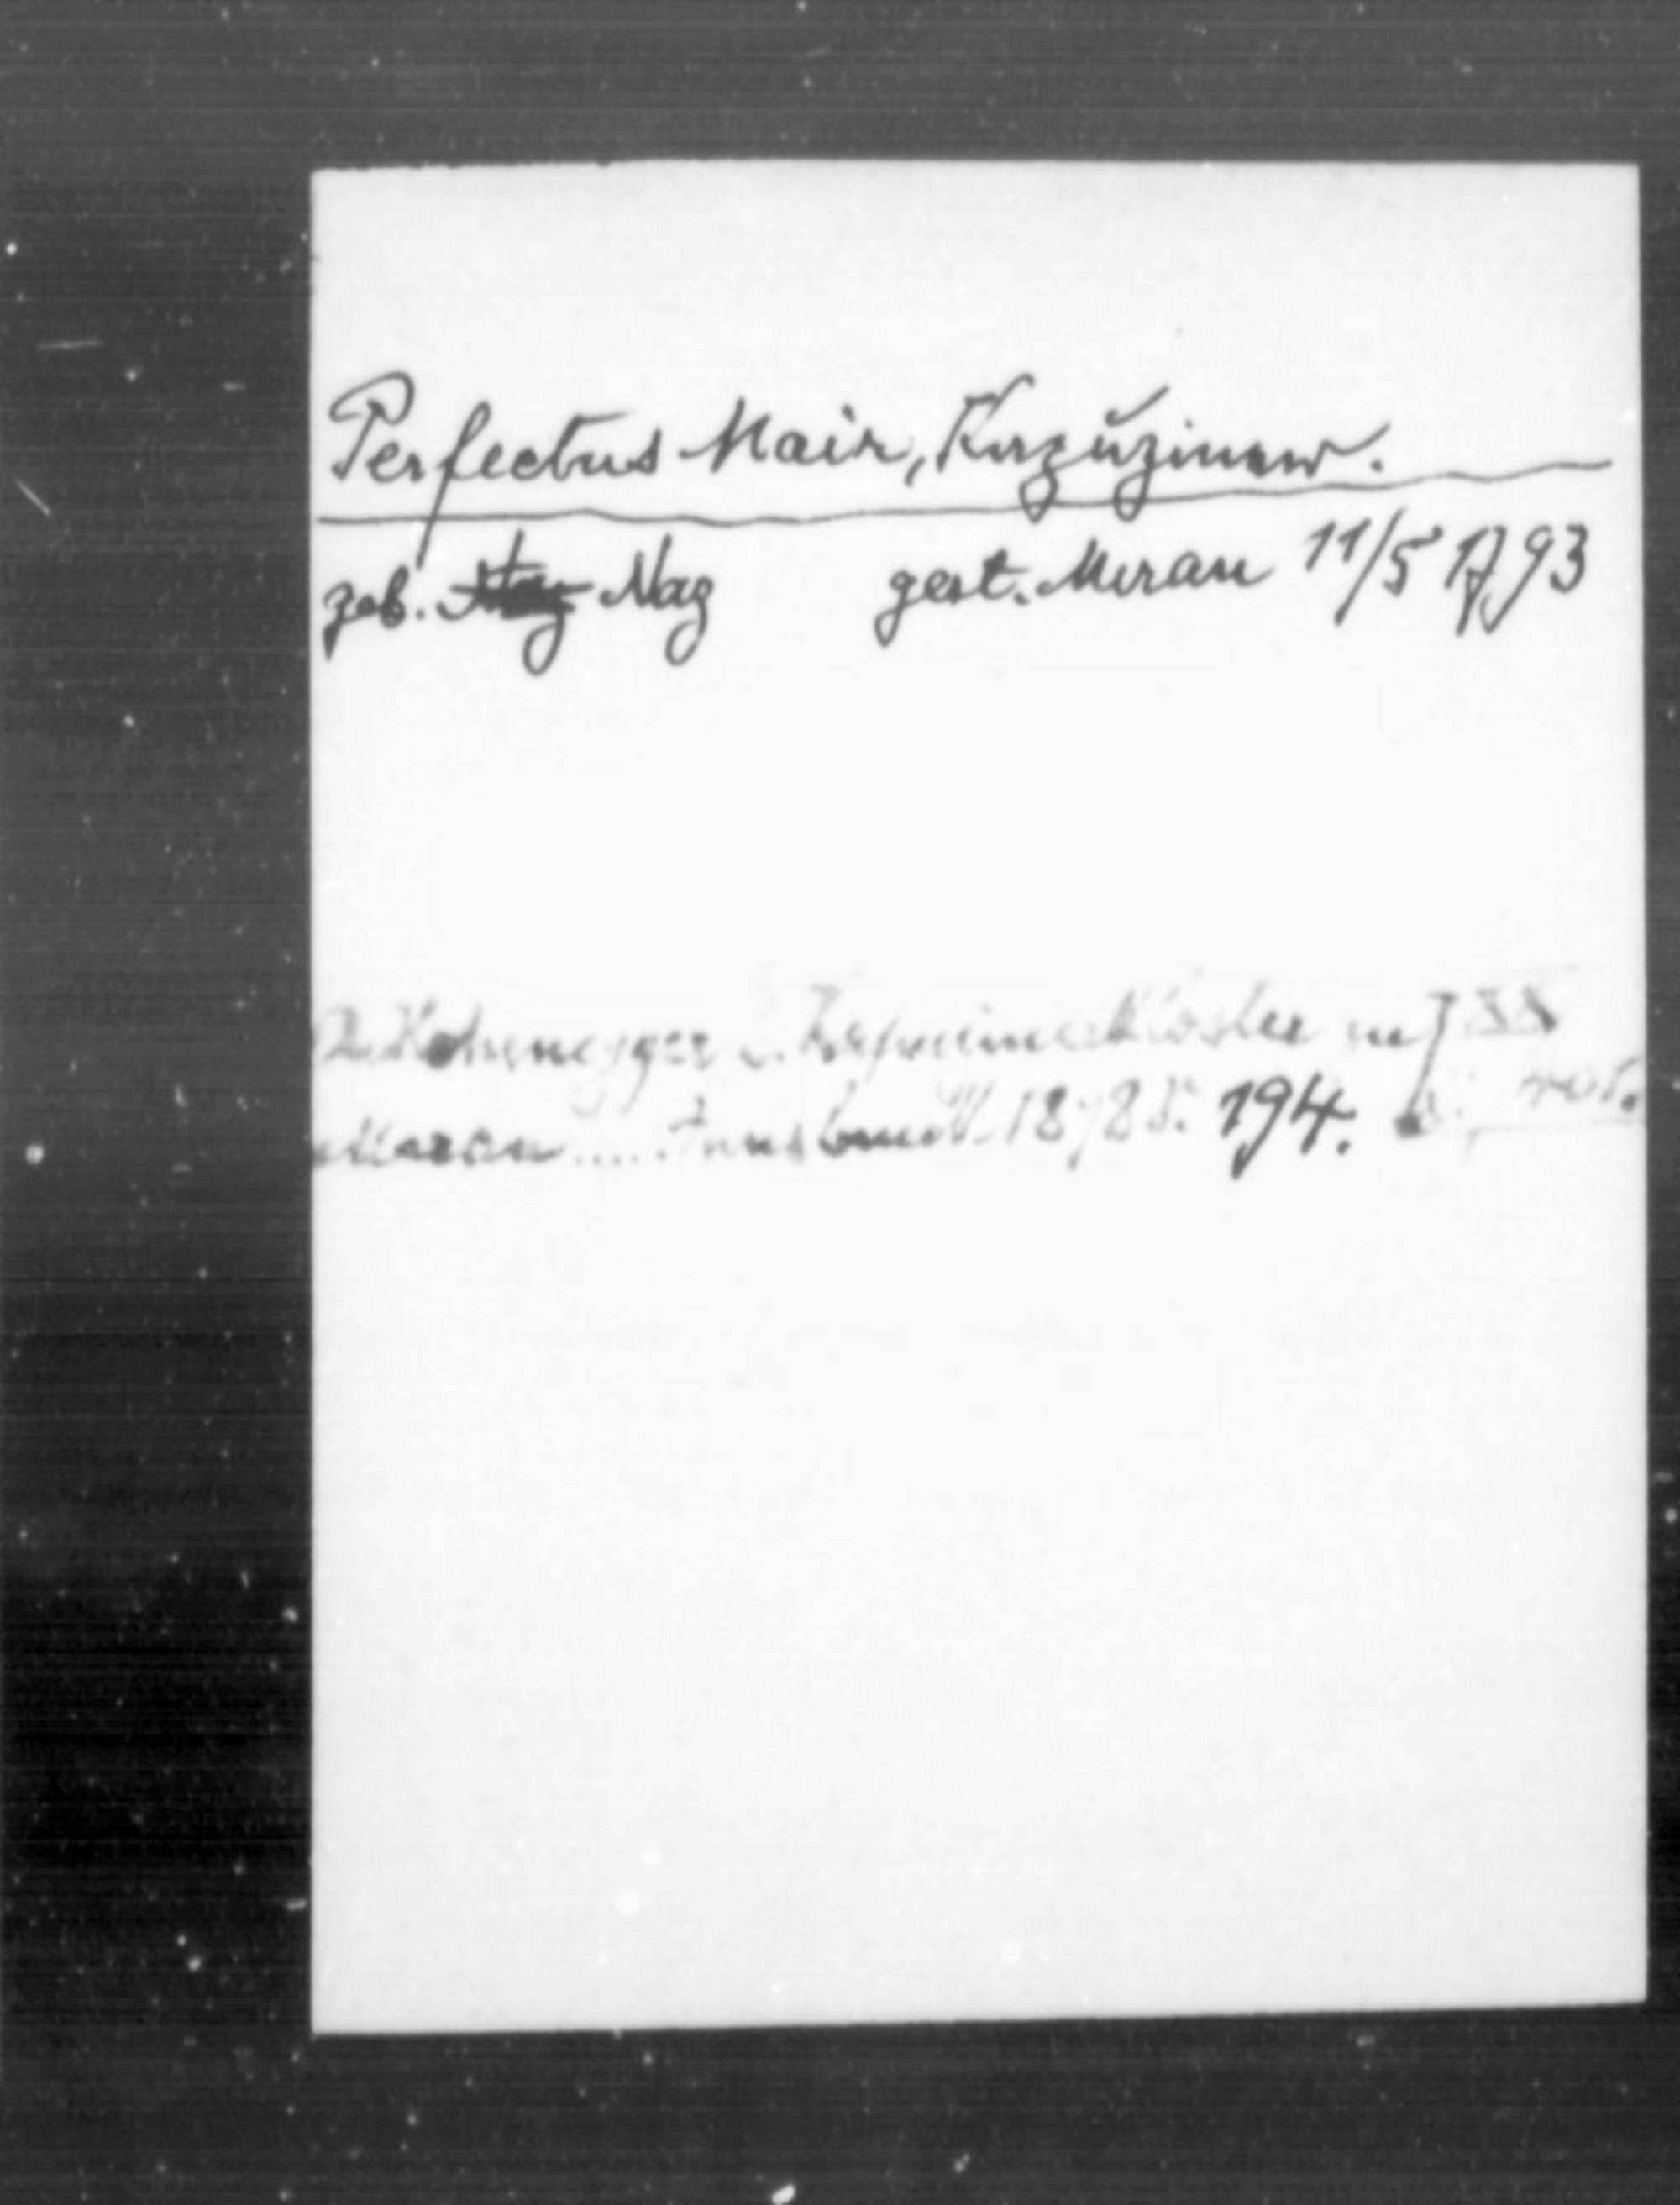 Perfectus Mair, Kapuziner.
geb. Naz gest. Meran 11/5 1793
A. Hohenegger d. Kapuzinerkloster in
Meran .... Innsbruck 18 S. 194.